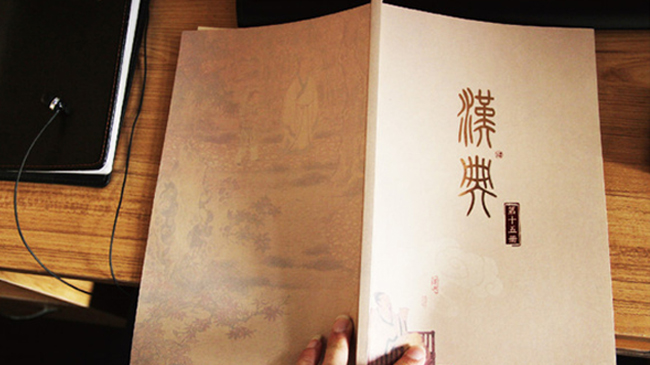 漢
典
第十五册